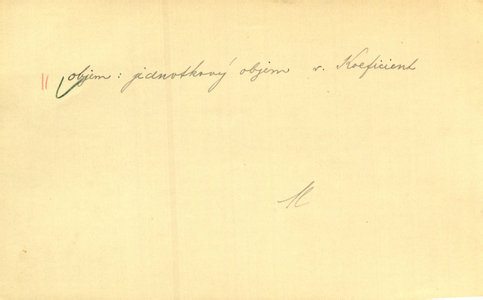 objem: jednotkový objem v. Koeficient